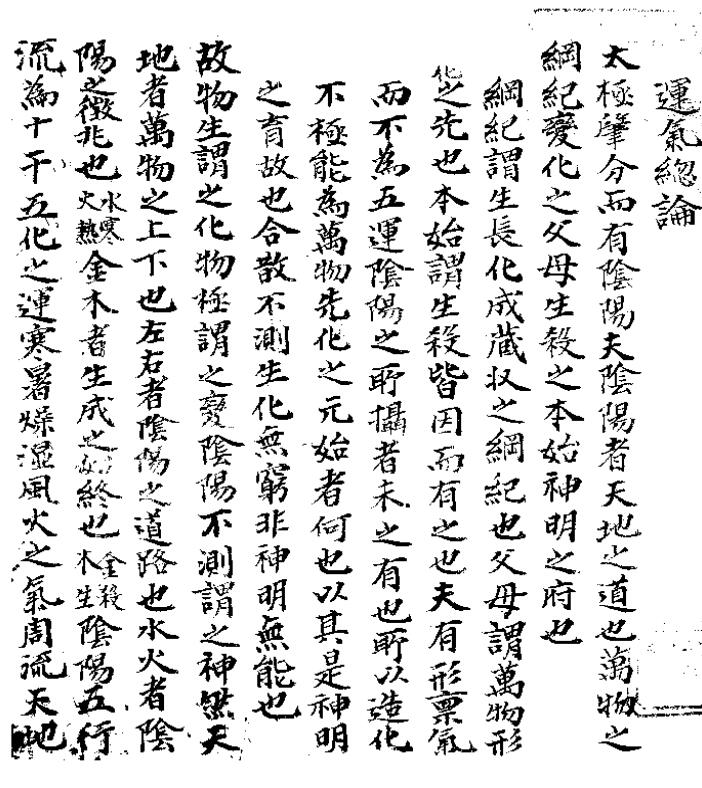 運氣總論
太極肇分而有陰陽夫陰陽者天地之道也萬物之
綱紀變化之父母生殺之本始神明之府也
綱紀謂生長化成藏収之綱紀也父母謂萬物形
化之先也本始謂生殺皆因而有之也夫有形禀氣
而不為五運陰陽之所攝者未之有也所以造化
不極能為萬物先化之元始者何也以其是神明
之育故也合散不測生化無窮非神明無能也
故物生謂之化物極謂之變陰陽不測謂之神然天
地者萬物之上下也左右者陰陽之道路也水火者陰
陽之徵兆也水寒火熱金木者生成之終也金殺木生陰陽五行
流為十干五化之運寒暑燥湿風火之氣周流天地